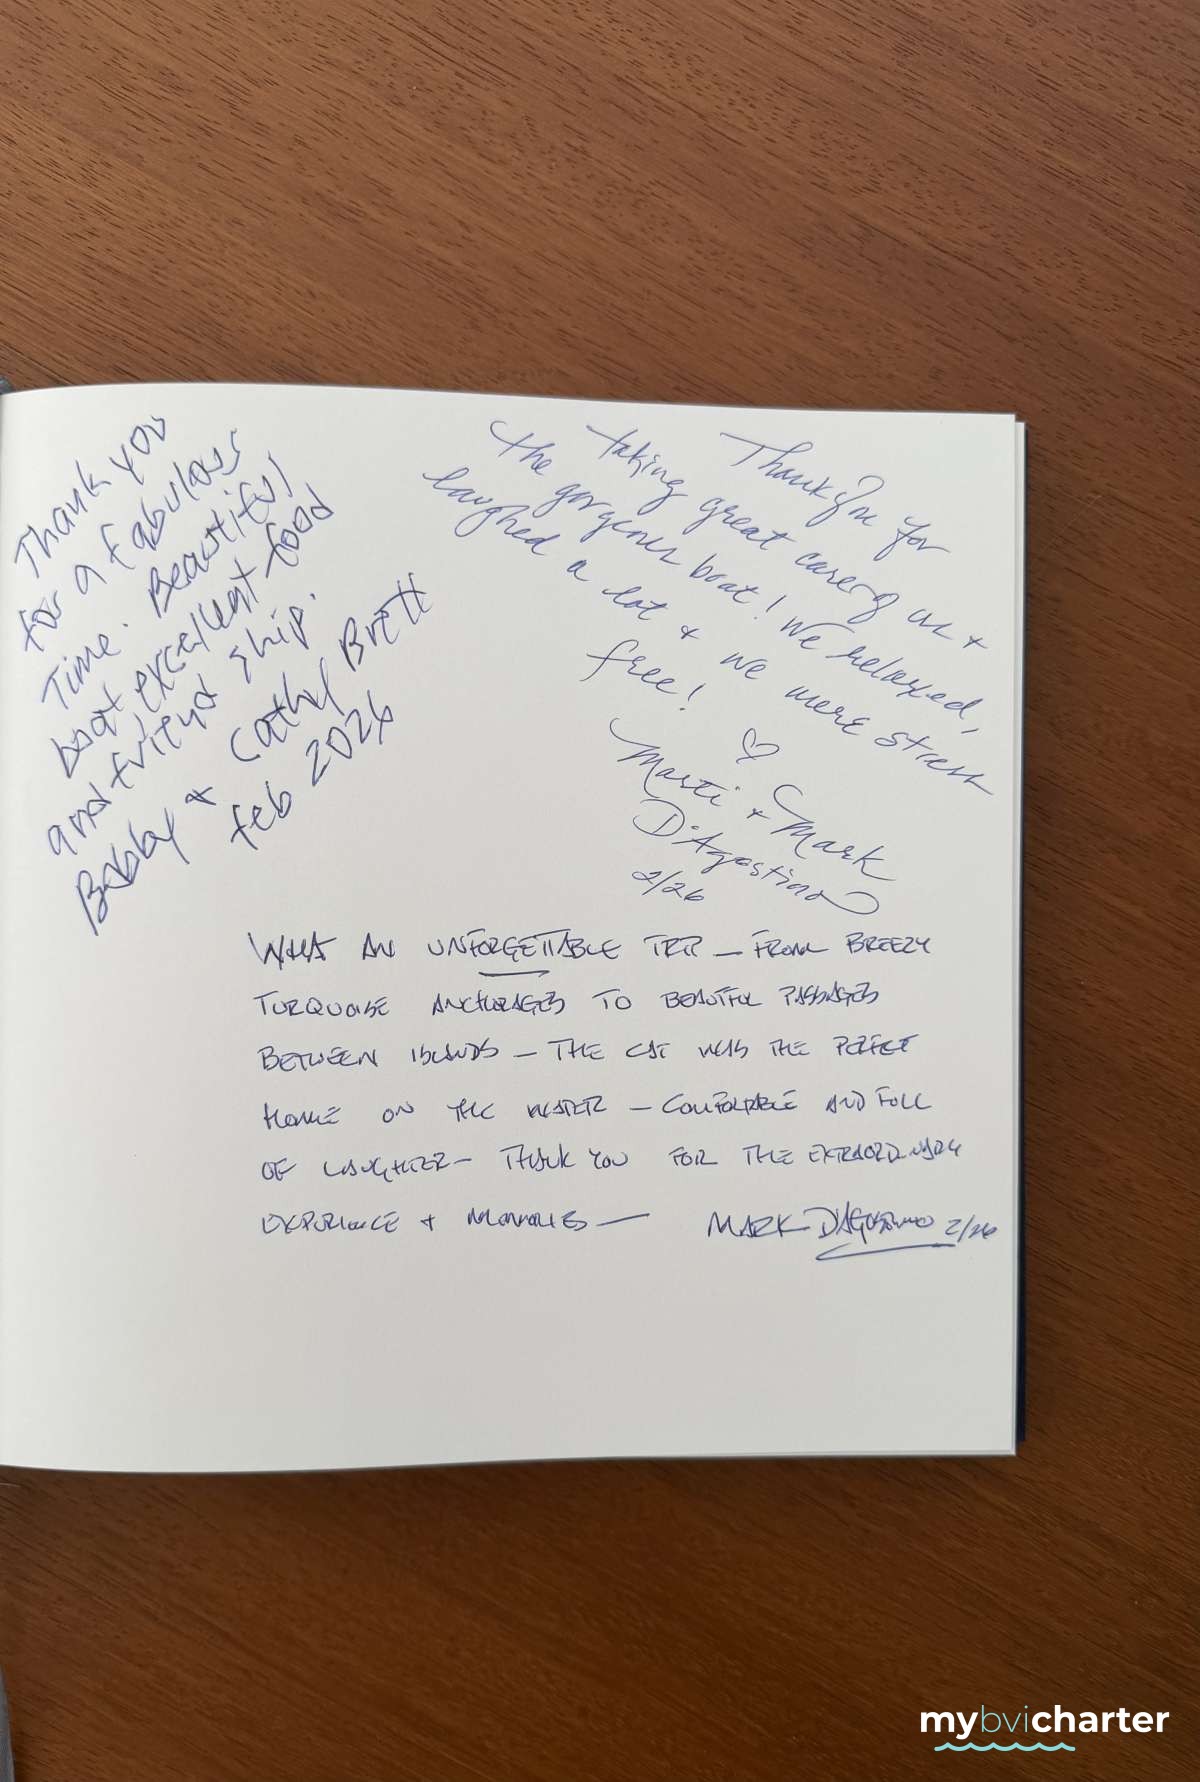 Thank you
for a fabulous
Time. Beautiful
boat, excellent food
and friend ship.
Bobby & Cathy Brett
feb 2026
Thank you for
taking great care of us +
the gorgeous boat! We relaxed,
laughed a lot + we were stress
free!
♡
Marti + Mark
D'Agostino
2/26
WHAT AN UNFORGETTABLE TRIP – FROM BREEZY
TURQUOISE ANCHORAGES TO BEAUTIFUL PASSAGES
BETWEEN ISLANDS – THE CAT WAS THE PERFECT
HOME ON THE WATER – COMFORTABLE AND FULL
OF LAUGHTER – THANK YOU FOR THE EXTRAORDINARY
EXPERIENCE + MEMORIES — MARK D'AGOSTINO 2/26
mybvicharter